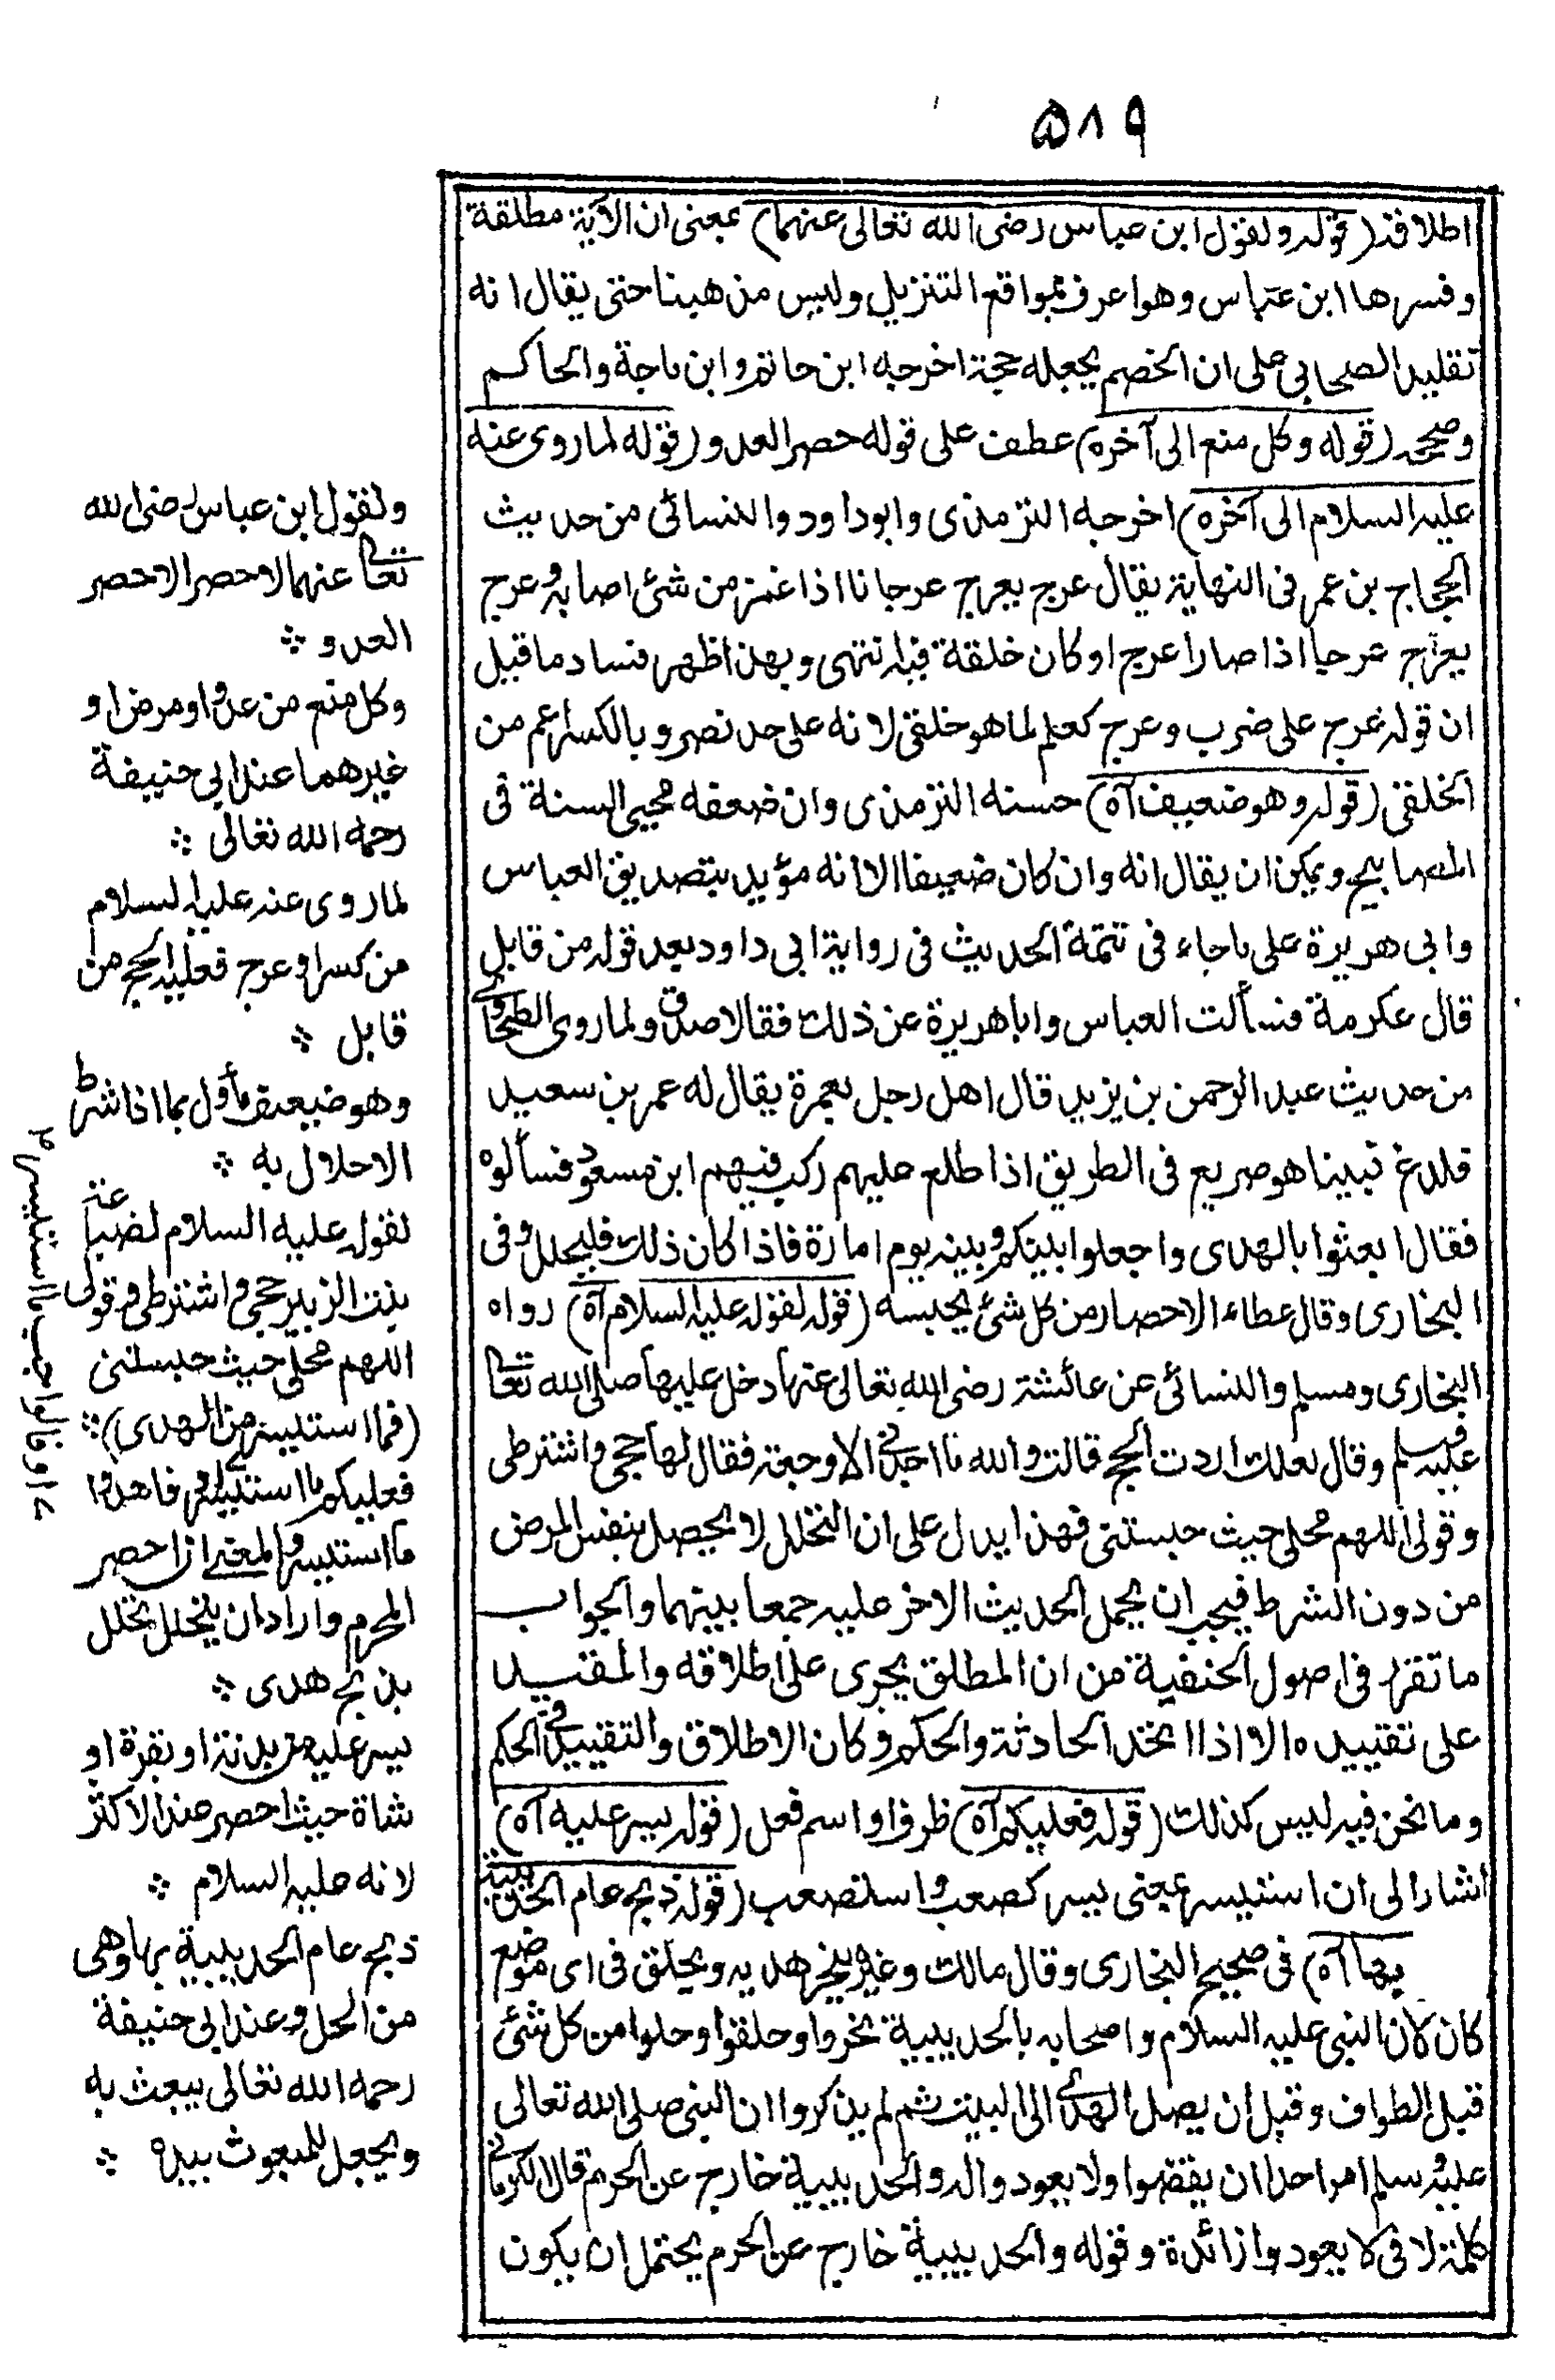 ۵۸۹
اطلاقه (قوله ولقول ابن عباس رضى الله تعالى عنهما) بمعنى ان الآية مطلقة
وفسرها ابن عباس وهو اعرف بمواقع التنزيل وليس من هبنا حتى يقال انه
تقليد الصحابى على ان الخصم يجعله حجة اخرجه ابن حاتم وابن ماجة والحاكم
وصححه (قوله وكل منع الى آخره) عطف على قوله حصر العدو (قوله لما روى عنه
عليه السلام الى آخره) اخرجه الترمذى وابو داود والنسائى من حديث
الحجاج بن عمر فى النهاية يقال عرج يعرج عرجانا اذا غمز من شئ اصابه وعرج
يعرج عرجا اذا صار اعرج او كان خلقة فيه انتهى وبهذا ظهر فساد ما قيل
ان قوله عرج على ضرب وعرج كعلم لما هو خلقى لانه على حد نصر وبالكسر اعم من
الخلقى (قوله وهو ضعيف آه) حسنه الترمذى وان ضعفه محيى السنة فى
المصابيح ويمكن ان يقال انه وان كان ضعيفا الا انه مؤيد بتصديق العباس
وابى هريرة على ما جاء فى تتمة الحديث فى رواية ابى داود بعد قوله من قابل
قال عكرمة فسألت العباس وابا هريرة عن ذلك فقالا صدق ولما روى الطحاوى
من حديث عبد الرحمن بن يزيد قال اهل رجل بعمرة يقال له عمر بن سعيد
فلدغ فبينا هو صريع فى الطريق اذا طلع عليهم ركب فيهم ابن مسعود فسألوه
فقال ابعثوا بالهدى واجعلوا بينكم وبينه يوم امارة فاذا كان ذلك فليحلل وفى
البخارى وقال عطاء الاحصار من كل شئ يحبسه (قوله لقوله عليه السلام آه) رواه
البخارى ومسلم والنسائى عن عائشة رضى الله تعالى عنها دخل عليها صلى الله تعالى
عليه وسلم وقال لعلك اردت الحج قالت والله ما اجدنى الا وجعة فقال لها حجى واشترطى
وقولى اللهم محلى حيث حبستنى فهذا يدل على ان التحلل لا يحصل بنفس المرض
من دون الشرط فيجب ان يحمل الحديث الاخر عليه جمعا بينهما والجواب
ما تقرر فى اصول الحنفية من ان المطلق يجرى على اطلاقه والمقيد
على تقييده الا اذا اتحد الحادثة والحكم وكان الاطلاق والتقييد فى الحكم
وما نحن فيه ليس كذلك (قوله فعليكم آه) ظرف او اسم فعل (قوله يسر عليه آه)
اشار الى ان استيسر بمعنى يسر كصعب واستصعب (قوله ذبح عام الحديبية
بها آه) فى صحيح البخارى وقال مالك وغيره ينحر هديه ويحلق فى اى موضع
كان لان النبى عليه السلام واصحابه بالحديبية نحروا وحلقوا وحلوا من كل شئ
قبل الطواف وقبل ان يصل الهدى الى البيت ثم لم يذكروا ان النبى صلى الله تعالى
عليه وسلم امر احدا ان يقضوا ولا يعودوا له والحديبية خارج عن الحرم قال الكرمانى
كلمة لا فى لا يعودوا زائدة وقوله والحديبية خارج عن الحرم يحتمل ان يكون
ولقول ابن عباس رضى الله
تعالى عنهما لا حصر الا حصر
العدو ∴
وكل منع من عدو او مرض او
غيرهما عند ابى حنيفة
رحمه الله تعالى ∴
لما روى عنه عليه السلام
من كسر او عرج فعليه الحج من
قابل ∴
وهو ضعيف مأول بما اذا شرط
الاحلال به ∴
لقوله عليه السلام لضباعة
بنت الزبير حجى واشترطى وقولى
اللهم محلى حيث حبستنى
(فما استيسر من الهدى) ∴
فعليكم ما استيسر او فاهدوا
ما استيسر والمعنى ان احصر
المحرم واراد ان يتحلل تحلل
بذبح هدى ∴
يسر عليه من بدنة او بقرة او
شاة حيث احصر عند الاكثر
لانه عليه السلام ∴
ذبح عام الحديبية بها وهى
من الحل وعند ابى حنيفة
رحمه الله تعالى يبعث به
ويجعل للمبعوث بيده ∴
ع او فالواجب ما استيسر ١٢